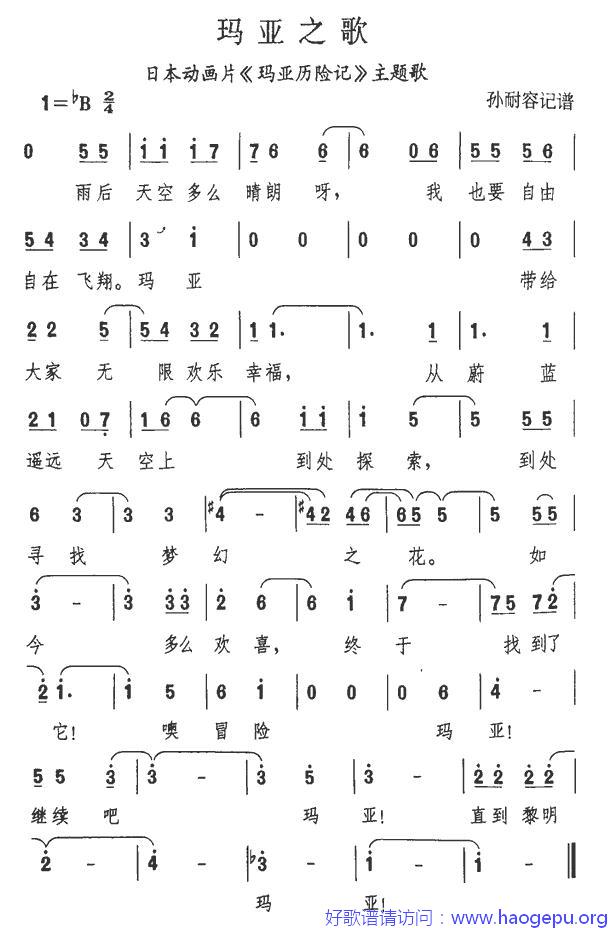 玛亚之歌
日本动画片《玛亚历险记》主题歌
1=♭B 2/4 孙耐容记谱
0 5 5 | i i i 7 | 7 6 6 | 6 0 6 | 5 5 5 6 |
雨后 天空多么 晴朗 呀， 我 也要自由
5 4 3 4 | 3 i | 0 0 | 0 0 | 0 4 3 |
自在 飞翔。玛 亚 带给
2 2 5 | 5 4 3 2 | 1 1. | 1. 1 | 1. 1 |
大家 无 限欢乐 幸福， 从 蔚 蓝
2 1 0 7 | 1 6 6 | 6 i i | i 5 | 5 5 5 |
遥远 天 空上 到处 探 索， 到处
6 3 | 3 3 | #4 - | #4 2 4 6 | 6 5 5 | 5 5 5 |
寻 找 梦 幻 之 花。 如
3 - | 3 3 3 | 2 6 | 6 i | 7 - | 7 5 7 2 |
今 多么 欢 喜， 终 于 找到了
2 i. | i 5 | 6 i | 0 0 | 0 6 | 4 - |
它！ 噢 冒 险 玛 亚！
5 5 3 | 3 - | 3 5 | 3 - | 2 2 2 2 |
继续 吧 玛 亚！ 直到黎明
2 - | 4 - | ♭3 - | i - | i - ‖
玛 亚！
好歌谱请访问：www.haogepu.org